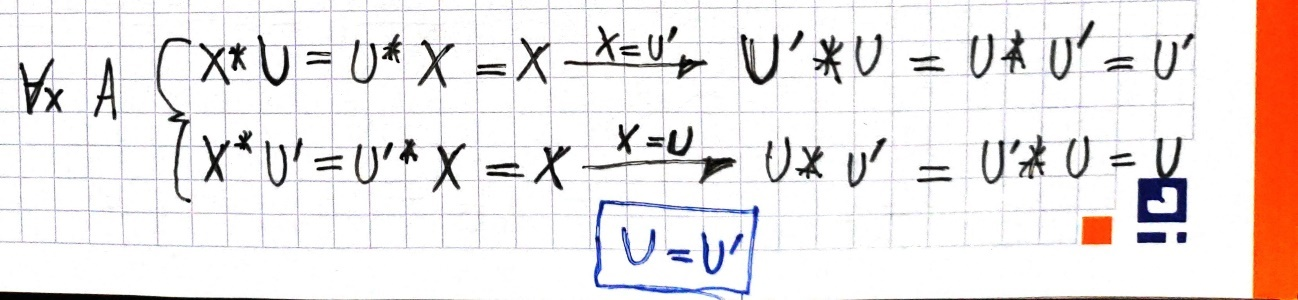 ∀x A { X * U = U * X = X —X=U'→ U' * U = U * U' = U'
X * U' = U' * X = X —X=U→ U * U' = U' * U = U
U = U'